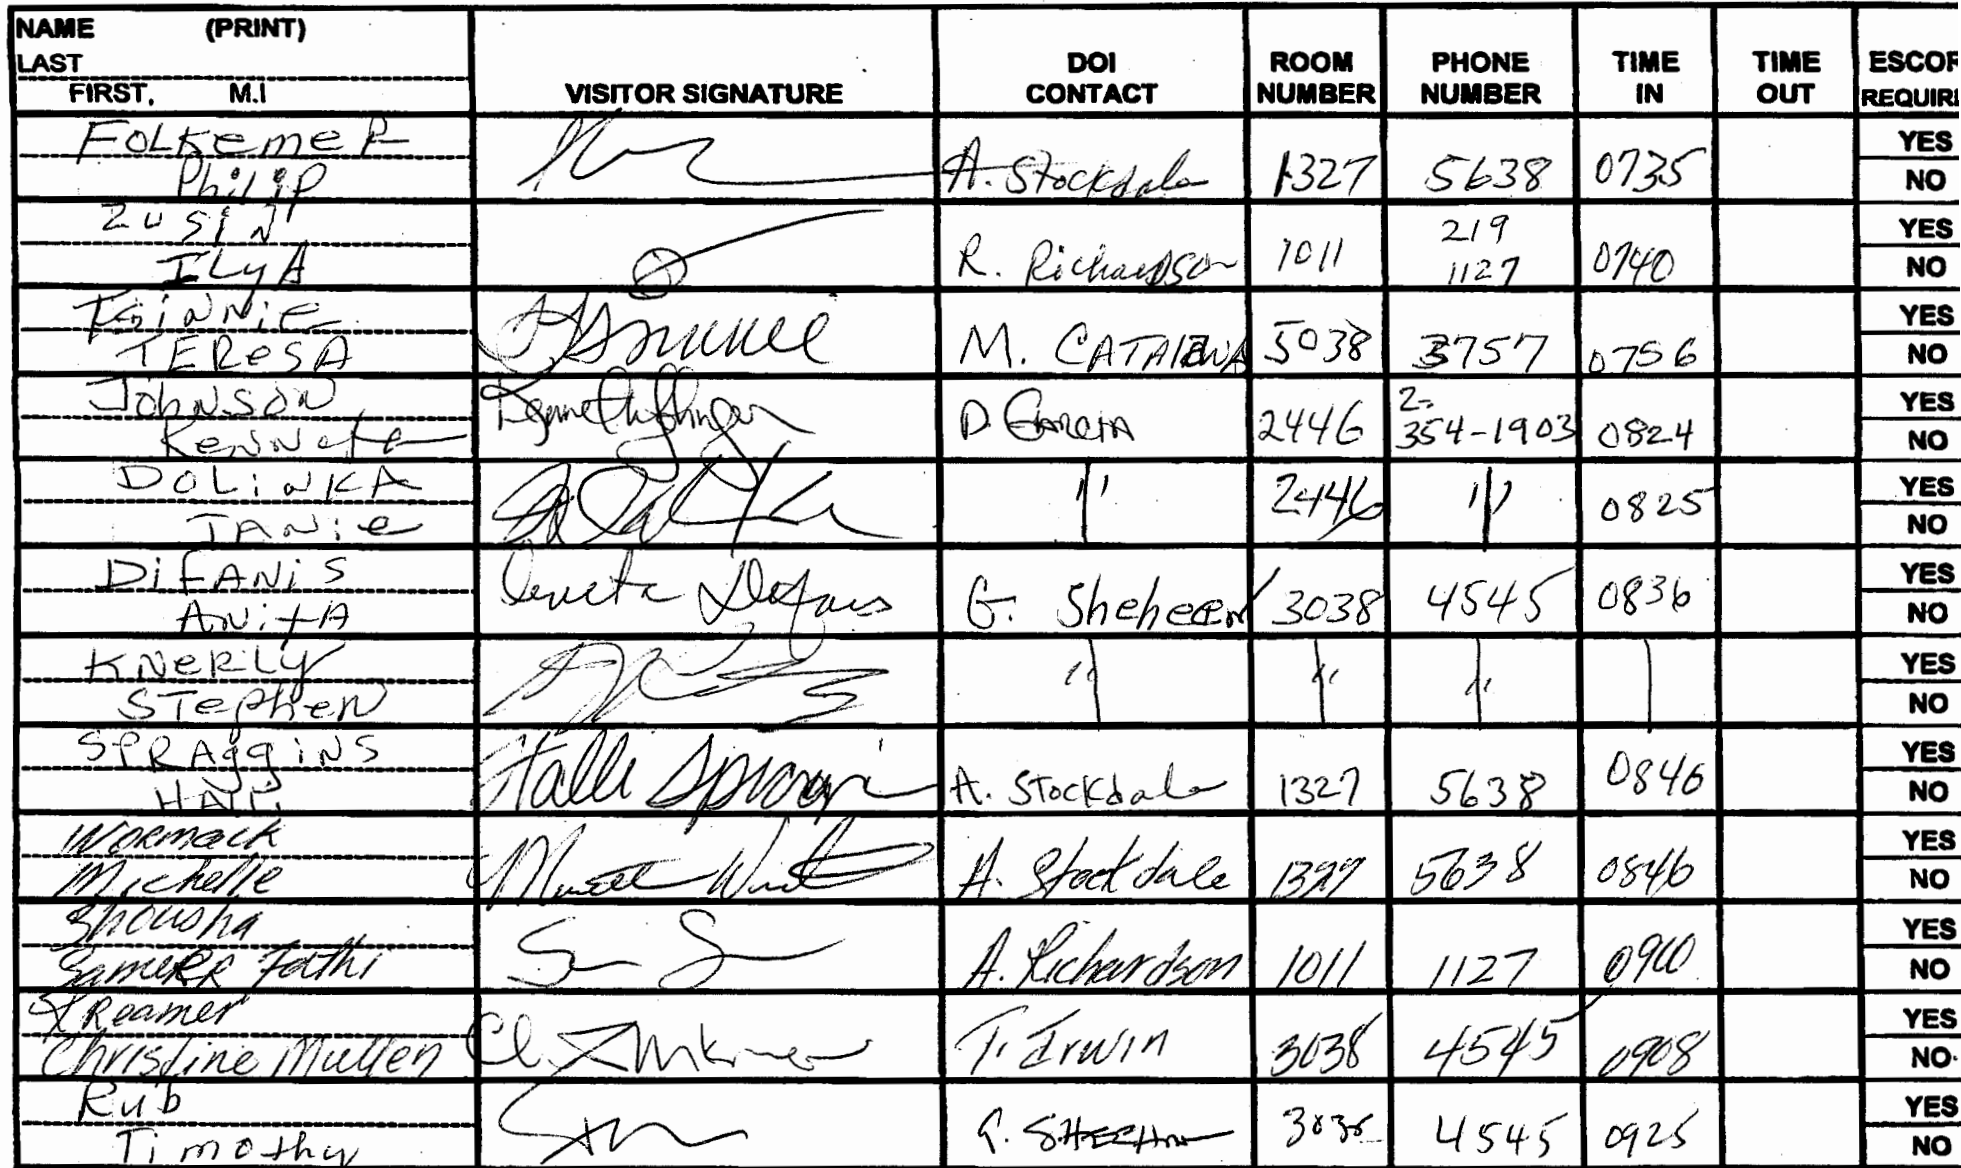 NAME (PRINT)
LAST
FIRST, M.I
VISITOR SIGNATURE
DOI CONTACT
ROOM NUMBER
PHONE NUMBER
TIME IN
TIME OUT
ESCOR
REQUIRE
Folkemer
Philip
A. Stockdale 1327 5638 0735
YES
NO
Zusin
ILyA
R. Richardson 1011 219 1127 0740
YES
NO
TERESA
M. 5038 3757 0756
YES
NO
Johnson
Kenneth
D. GARCIA 2446 2-354-1903 0824
YES
NO
DOLiNKA
JANie
" 2446 " 0825
YES
NO
DiFANiS
ANitA
G. Sheheen 3038 4545 0836
YES
NO
KNeRLy
STephen
" " "
YES
NO
SPRAggiNS
HALLi
Halli
A. Stockdale 1327 5638 0846
YES
NO
Wormack
Michelle
A. Stockdale 1327 5638 0846
YES
NO
Shousha
Fathi
A. Richardson 1011 1127
YES
NO
Kreamer
Christine Mullen
T. Irwin 3038 4545 0908
YES
NO
Rub
Timothy
4545 0925
YES
NO